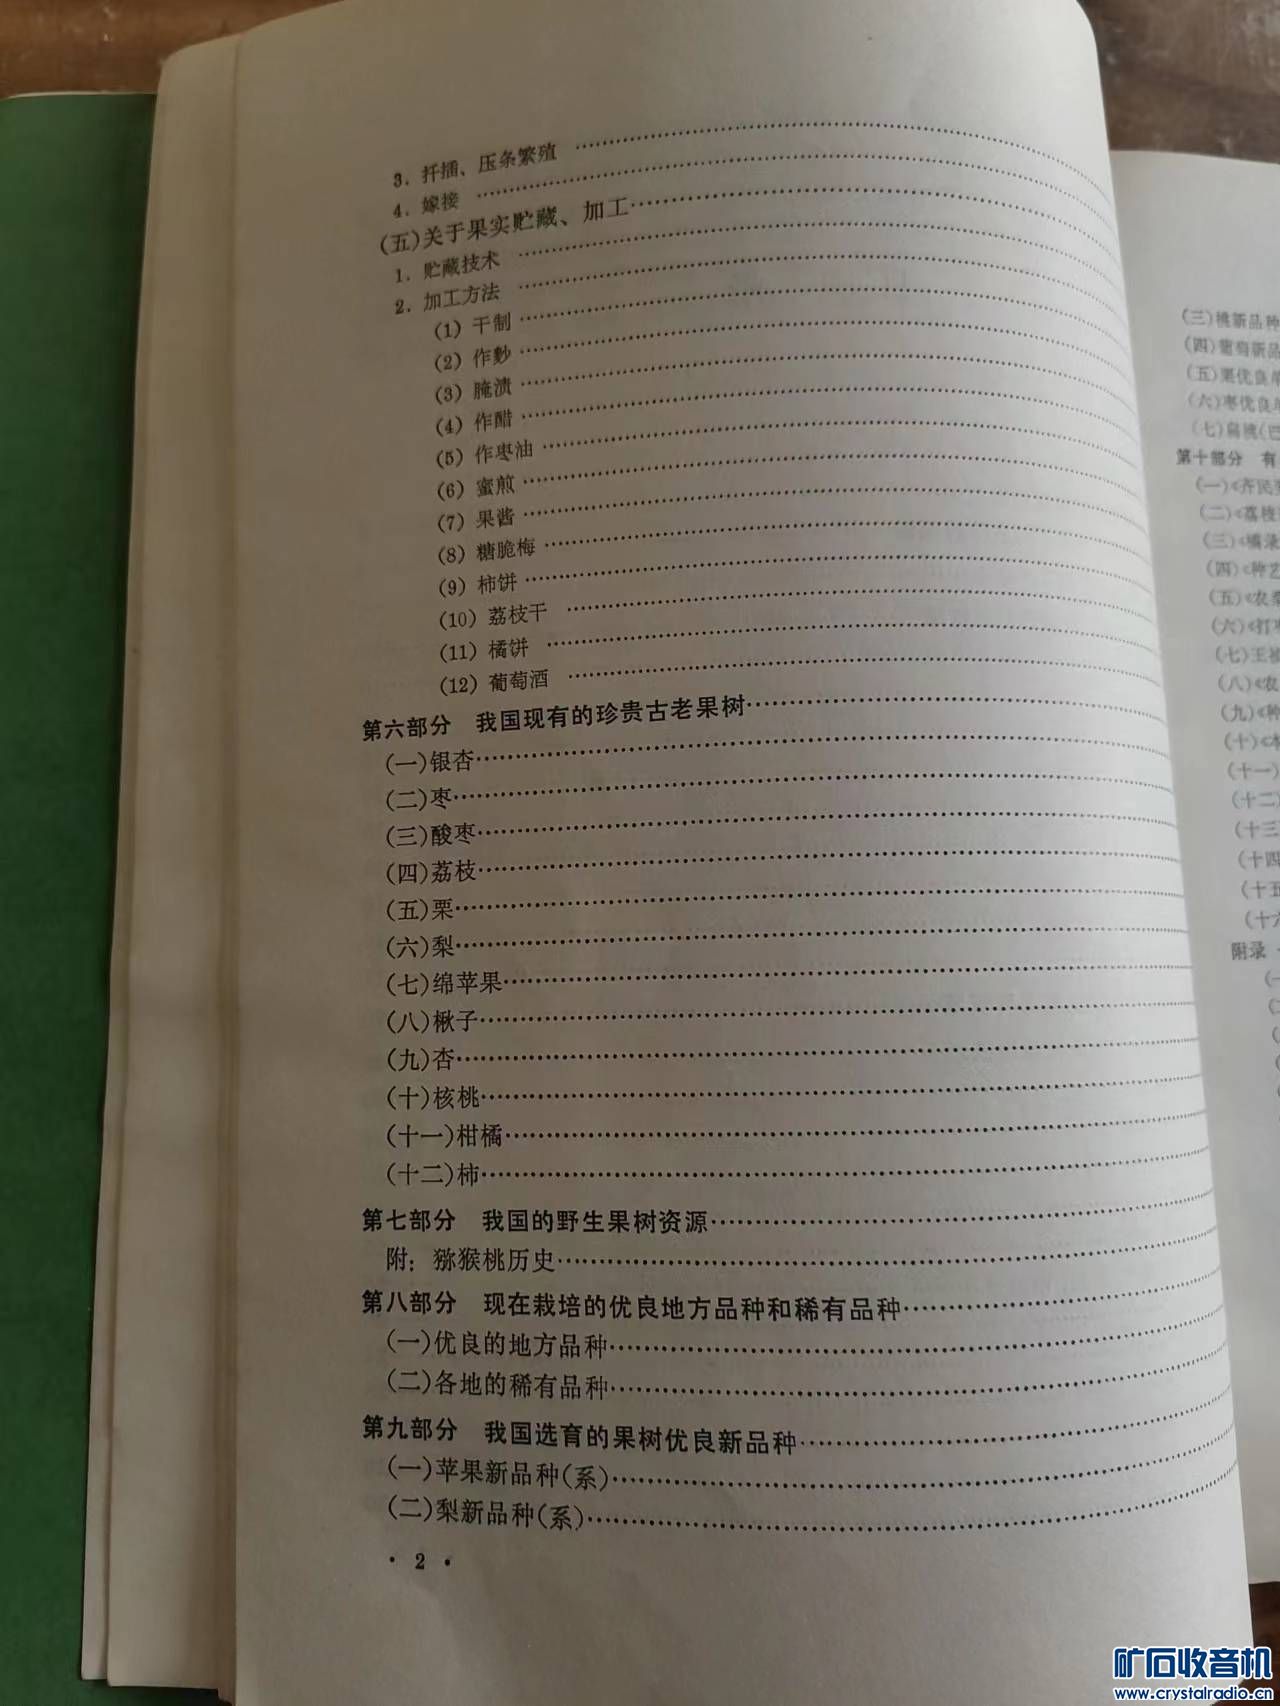 3．扦插、压条繁殖 ……………………
4．嫁接 ……………………
(五)关于果实贮藏、加工……………………
1．贮藏技术 ……………………
2．加工方法 ……………………
(1) 干制……………………
(2) 作麨……………………
(3) 腌渍……………………
(4) 作醋……………………
(5) 作枣油……………………
(6) 蜜煎……………………
(7) 果酱……………………
(8) 糖脆梅……………………
(9) 柿饼……………………
(10) 荔枝干 ……………………
(11) 橘饼 ……………………
(12) 葡萄酒 ……………………
第六部分 我国现有的珍贵古老果树……………………
(一)银杏……………………
(二)枣……………………
(三)酸枣……………………
(四)荔枝……………………
(五)栗……………………
(六)梨……………………
(七)绵苹果……………………
(八)楸子……………………
(九)杏……………………
(十)核桃……………………
(十一)柑橘……………………
(十二)柿……………………
第七部分 我国的野生果树资源……………………
附：猕猴桃历史……………………
第八部分 现在栽培的优良地方品种和稀有品种……………………
(一)优良的地方品种……………………
(二)各地的稀有品种……………………
第九部分 我国选育的果树优良新品种……………………
(一)苹果新品种(系)……………………
(二)梨新品种(系)……………………
· 2 ·
(三)桃新品种
(四)葡萄新品
(五)栗优良单
(六)枣优良单
(七)扁桃(巴
第十部分 有
(一)《齐民要
(二)《荔枝
(三)《橘录
(四)《种艺
(五)《农桑
(六)《打枣
(七)王祯
(八)《农
(九)《种
(十)《本
(十一)
(十二)
(十三
(十四
(十五
(十六
附录
矿石收音机
www.crystalradio.cn